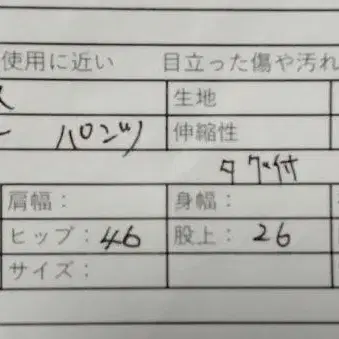 使用に近い 目立った傷や汚れ
生地
パンツ 伸縮性
タグ付
肩幅： 身幅：
ヒップ：46 股上：26
サイズ：